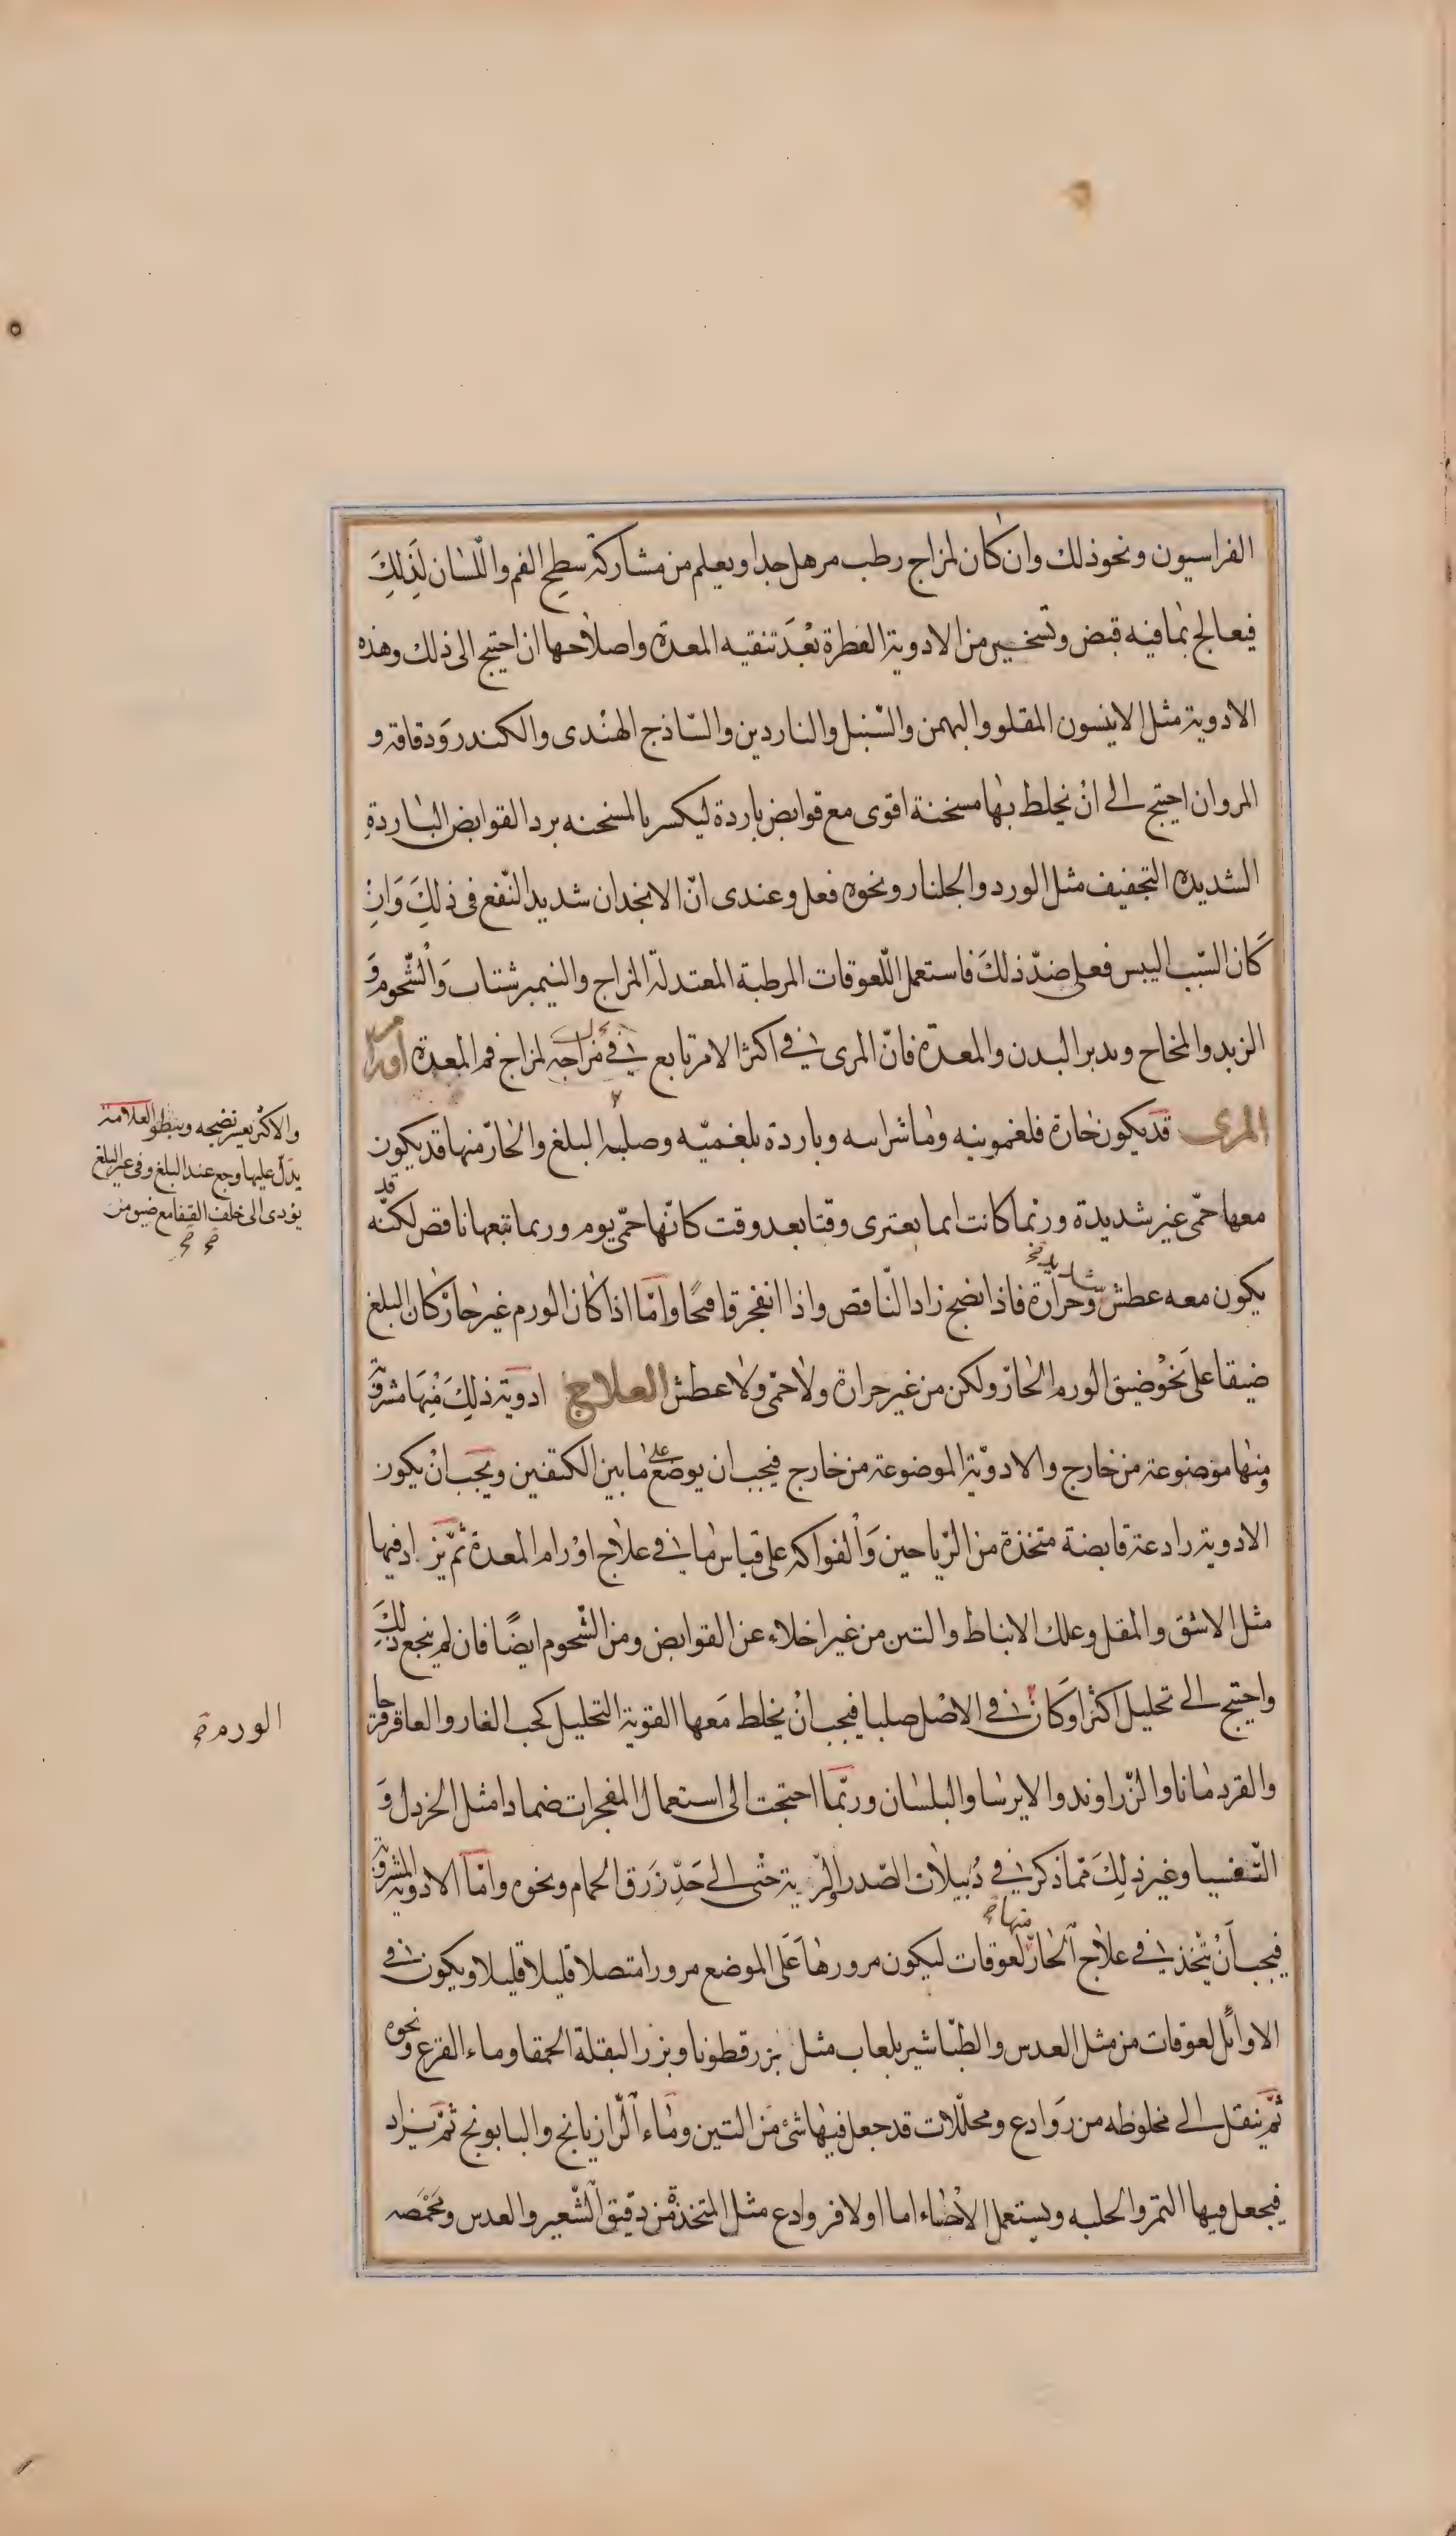 الفراسيون ونحو ذلك وان كان لمزاج رطب مرهل جدا ويعلم من مشاركة سطح الفم واللسان لذلك
فيعالج بما فيه قبض وتسخين من الادوية العطرة بعد تنقيه المعدة واصلاحها ان احتيج الى ذلك وهذه
الادوية مثل الانيسون المقلو والبهمن والسنبل والناردين والساذج الهندى والكندر ودقاقه و
المر وان احتيج الى ان يخلط بها مسخنة اقوى مع قوابض باردة ليكسر بالمسخنه برد القوابض الباردة
الشديدة التجفيف مثل الورد والجلنار ونحوه فعل وعندى انّ الانجدان شديد النّفع فى ذلك وان
كان السّبب اليبس فعلى ضدّ ذلك فاستعمل اللّعوقات المرطبة المعتدلة المزاج والنيمبرشتات والشّحوم و
الزبد والمخاخ ويدبر البدن والمعدة فانّ المرى فى اكثر الامر تابع فى مزاجه لمزاج فم المعدة اورام
المرى قد يكون حارة فلغمونيه وماشرائيه وباردة بلغميّه وصلبه البلغ والحارّ منها قد يكون
معها حمّى غير شديدة وربما كانت انما يعترى وقتا بعد وقت كانّها حمّى يوم وربما تتبعها نافض لكنّه قد
يكون معه عطش شديد وحرارة فاذا نضج زاد النّافض واذا انفجر قا قيحًا وامّا اذا كان الورم غير حارّ كان البلغ
ضيقا على نحو ضيق الورم الحارّ ولكن من غير حرارة ولا حمّى ولا عطش العلاج ادوية ذلك منها مشروبة
ومنها موضوعة من خارج والادويّة الموضوعة من خارج فيجب ان يوضع على ما بين الكتفين ويجب ان يكون
الادوية رادعة قابضة متخذة من الرّياحين والفواكه على قياس ما فى علاج اورام المعدة ثمّ يزاد فيها
مثل الاشق والمقل وعلك الانباط والتين من غير اخلاء عن القوابض ومن الشّحوم ايضًا فان لم ينجع ذلك
واحتيج الى تحليل اكثر او كان فى الاصل صلبا فيجب ان يخلط معها القوية التحليل كحب الغار والعاقرقرحا
والقردمانا والزّراوند والايرسا والبلسان وربّما احتجت الى استعمال المفجرات ضمادا مثل الخردل و
الثّفسيا وغير ذلك ممّا ذكر فى دبيلات الصّدر والرّية حتى الى حدّ زرق الحمام ونحوه وامّا الادوية المشروبة
فيجب ان يتّخذ فى علاج الحارّ منها لعوقات ليكون مرورها على الموضع مرورا متصلا قليلا قليلا ويكون فى
الاوائل لعوقات من مثل العدس والطبّاشير بلعاب مثل بزر قطونا وبزر البقلة الحمقا وماء القرع ونحوه
ثمّ ينقل الى مخلوطه من روادع ومحلّلات قد جعل فيها شئ من التين وماء الرّازيانج والبابونج ثمّ يزاد
فيجعل فيها التمر والحلبه ويستعمل الاطلاء اما اولا فروادع مثل المتخذة من دقيق الشّعير والعدس ومحمّصه
والاكثر يعسر نضجه ويبطؤ العلامة
يدلّ عليها وجع عند البلع وفى غير البلع
يؤدى الى خلف القفا مع ضيق من
الورم